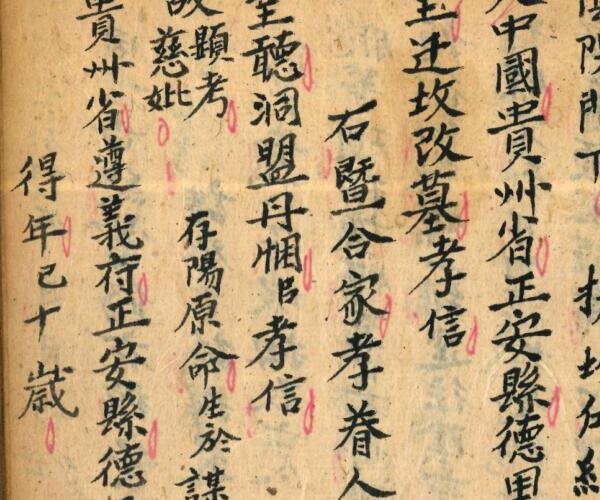 中國貴州省正安縣德
迁坟改墓孝信
右暨合家孝眷人
聽洞盟丹悃臣孝信
故顯考
慈妣
存陽原命生於謀
貴州省遵義府正安縣德
得年已十歲